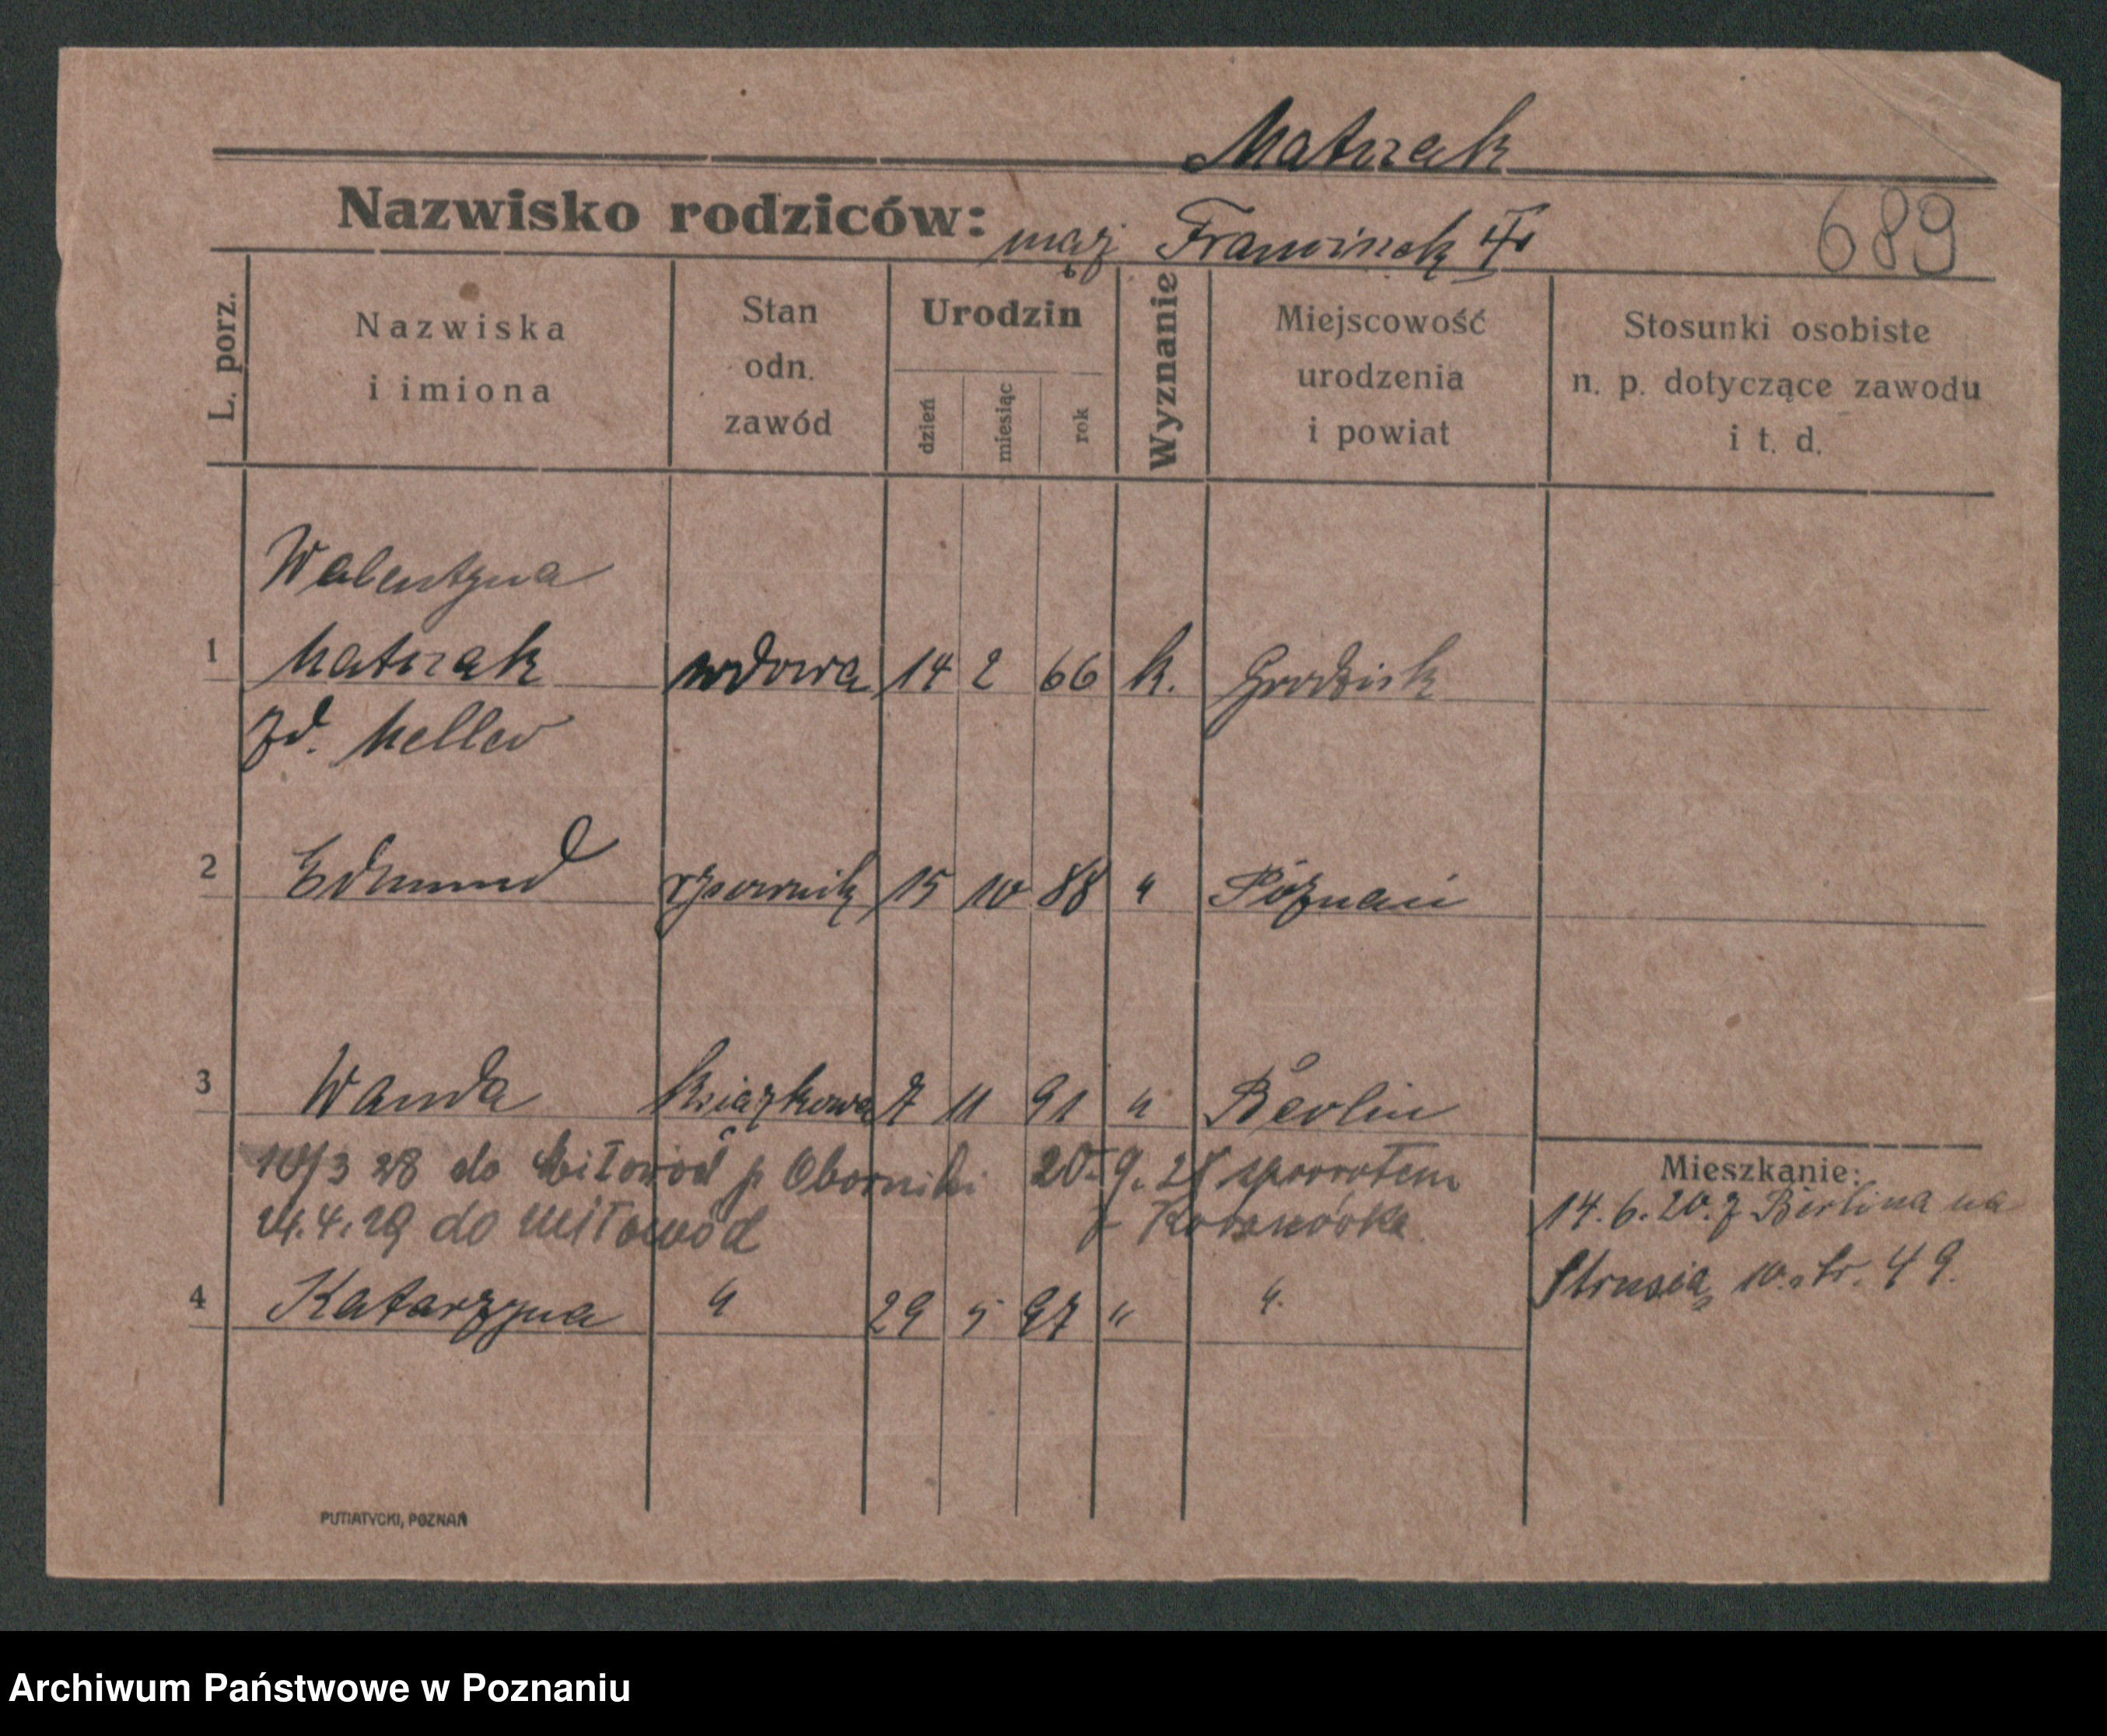 Matczak
Nazwisko rodziców: mąż Franciszek
689
L. porz.
Nazwiska
i imiona
Stan
odn.
zawód
Urodzin
dzień
miesiąc
rok
Wyznanie
Miejscowość
urodzenia
i powiat
Stosunki osobiste
n. p. dotyczące zawodu
i t. d.
Walentyna
1 Matczak wdowa 14 2 66 k. Grodzisk
zd. Meller
2 Edmund 15 10 88 " Poznań
3 Wanda książkowa 7 11 91 " Berlin
10/3 28 do Miłowód p Oborniki 20. 9. 28 spowrotem
24.4.29 do Miłowód z
Mieszkanie:
14. 6. 20. z Berlina na
Strusią 10. str. 49.
4 Katarzyna " 29 5 97 " "
PUTIATYCKI, POZNAŃ
Archiwum Państwowe w Poznaniu